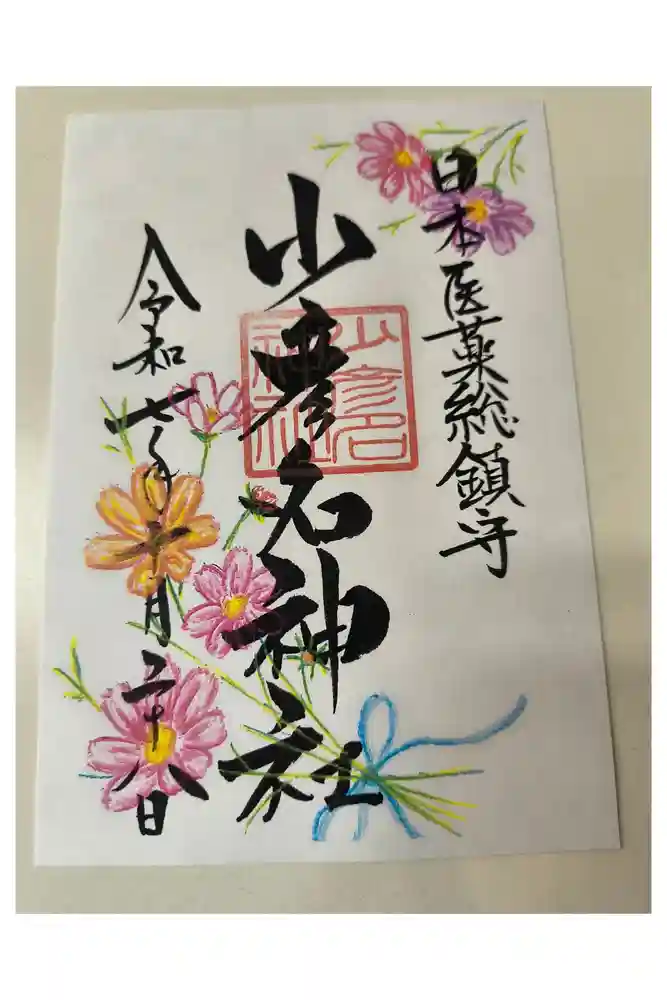 日本医薬総鎮守
少彦名神社
少彦名
神社
令和七年十月二十八日